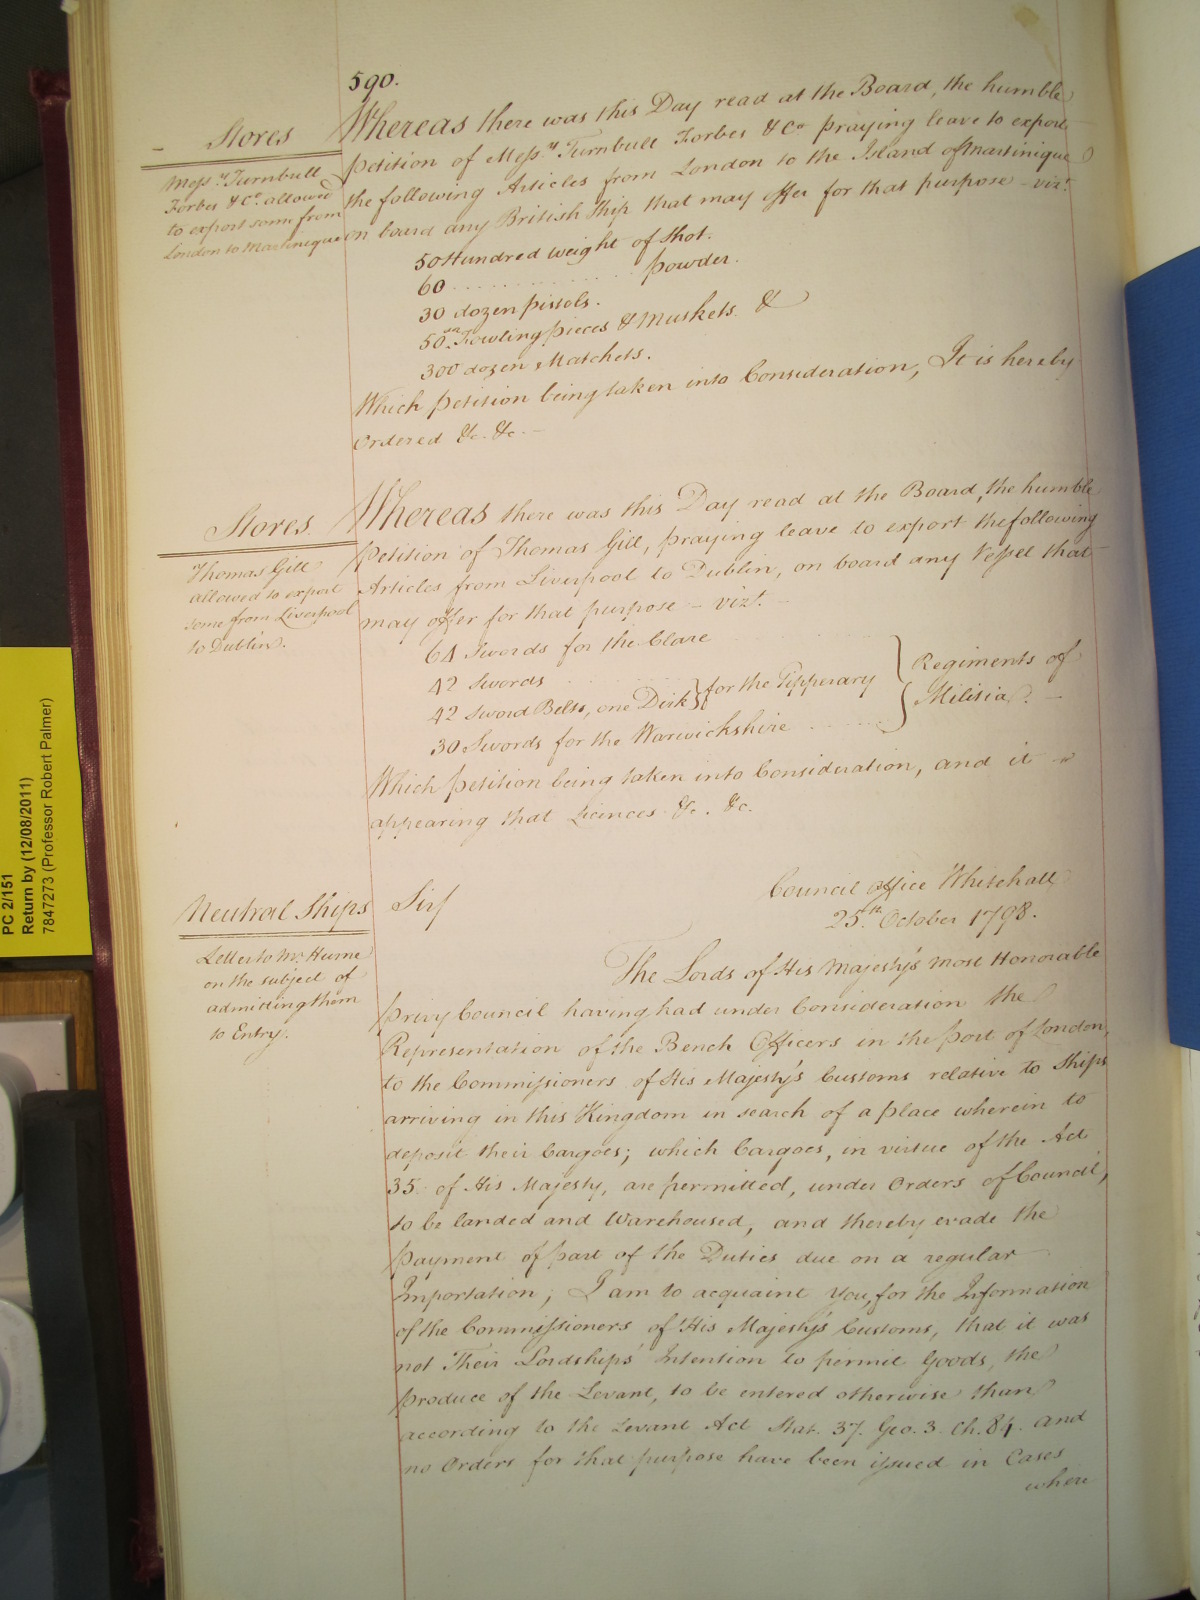 590.
Stores
Mess.rs Turnbull
Forbes & Co. allowed
to export some from
London to Martinique
Whereas there was this Day read at the Board, the humble
petition of Mess.rs Turnbull Forbes & Co praying leave to export
the following Articles from London to the Island of Martinique
on board any British Ship that may offer for that purpose – vizt.
50 Hundred weight of Shot.
60 . . . . . . . . . . . . powder.
30 dozen pistols.
50 Do. Fowling pieces & Muskets. &
300 dozen Matchets.
Which petition being taken into Consideration, It is hereby
Ordered &c. &c. –
Stores.
Thomas Gill
allowed to export
some from Liverpool
to Dublin.
Whereas there was this Day read at the Board, the humble
petition of Thomas Gill, praying leave to export the following
Articles from Liverpool to Dublin, on board any Vessel that
may offer for that purpose – vizt. –
64 Swords for the Clare
42 Swords
42 Sword Belts, one Dirk } for the Tipperary
30 Swords for the Warwickshire
} Regiments of
Militia. –
Which petition being taken into Consideration, and it
appearing that Licences &c. &c.
Neutral Ships
Letter to Mr. Hume
on the subject of
admitting them
to Entry.
Council Office Whitehall
25th. October 1798.
Sir
The Lords of His Majesty's most Honorable
privy Council having had under Consideration the
Representation of the Bench Officers in the port of London,
to the Commissioners of His Majesty's Customs relative to Ships
arriving in this Kingdom in search of a place wherein to
deposit their Cargoes; which Cargoes, in virtue of the Act
35. of His Majesty, are permitted, under Orders of Council,
to be landed and Warehoused, and thereby evade the
payment of part of the Duties due on a regular
Importation; I am to acquaint You, for the Information
of the Commissioners of His Majesty's Customs, that it was
not Their Lordships' Intention to permit Goods, the
produce of the Levant, to be entered otherwise than
according to the Levant Act Stat. 37. Geo. 3. Ch. 84. and
no Orders for that purpose have been issued in Cases
where
PC 2/151
Return by (12/08/2011)
7847273 (Professor Robert Palmer)